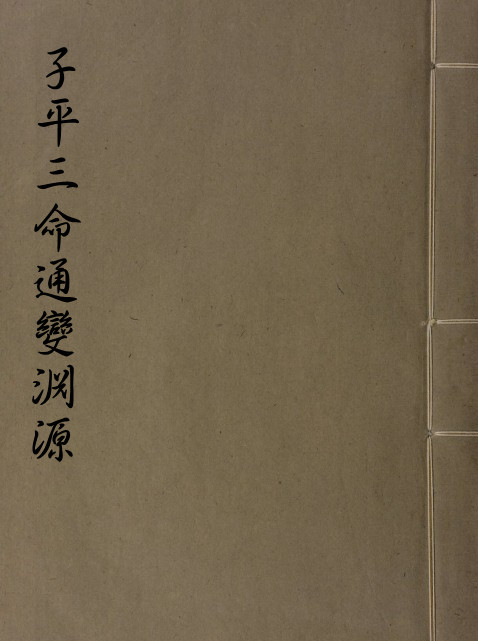 子平三命通變渊源